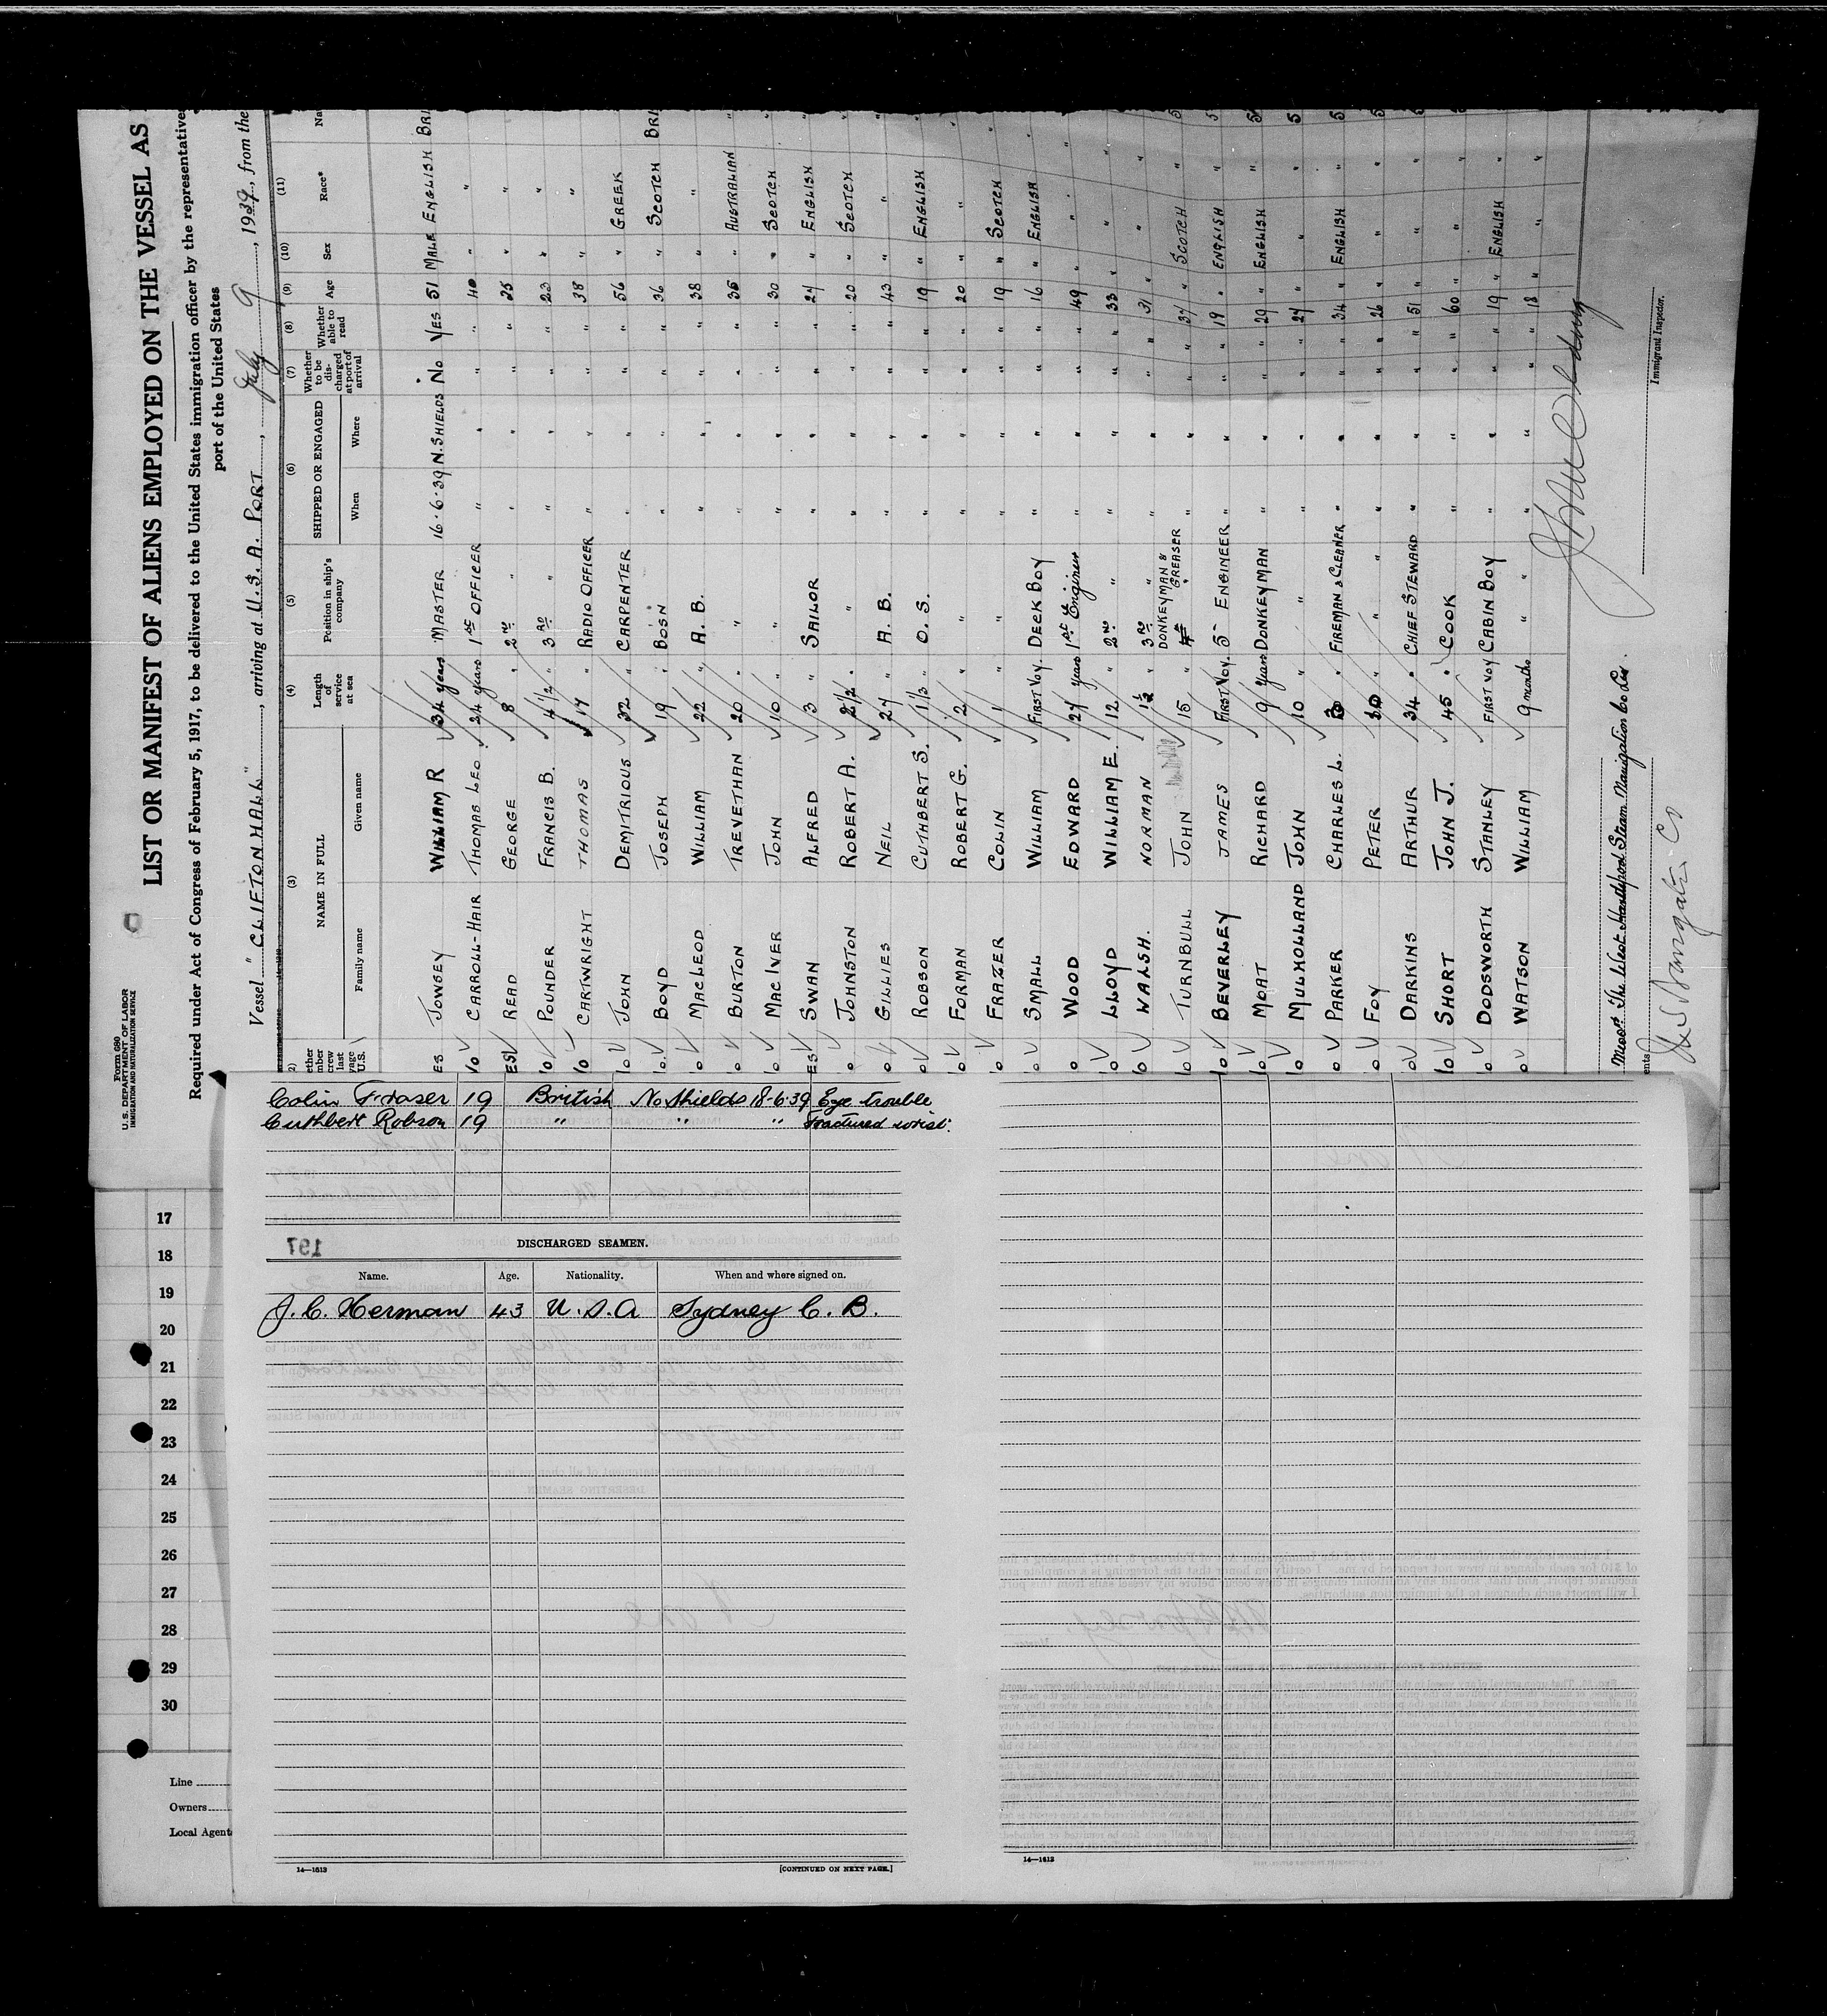 Form 680
U. S. DEPARTMENT OF LABOR
IMMIGRATION AND NATURALIZATION SERVICE
LIST OR MANIFEST OF ALIENS EMPLOYED ON THE VESSEL AS
Required under Act of Congress of February 5, 1917, to be delivered to the United States immigration officer by the representative
port of the United States
Vessel "CLIFTONHALL", arriving at U.S.A. PORT, July 9, 1939, from the
(3) (4) (5) (6) (7) (8) (9) (10) (11)
NAME IN FULL Length of service at sea Position in ship's company SHIPPED OR ENGAGED Whether to be discharged at port of arrival Whether able to read Age Sex Race* Na
Family name Given name When Where
ES JOWSEY WILLIAM R 34 years MASTER 16.6.39 N. SHIELDS No YES 51 MALE ENGLISH BRI
10 CARROLL-HAIR THOMAS LEO. 24 years 1ST OFFICER " " " " 40 " "
ES READ GEORGE 8 " 2ND " " " " " 35 " "
10 POUNDER FRANCIS B. 4 1/2 " 3RD " " " " " 23 " "
10 CARTWRIGHT THOMAS 17 " RADIO OFFICER " " " " 38 " "
10 JOHN DEMITRIOUS 32 " CARPENTER " " " " 56 " GREEK
10 BOYD JOSEPH 19 " BOSN " " " " 36 " SCOTCH BRI
0 MACLEOD WILLIAM 22 " A. B. " " " " 38 " "
0 BURTON TREVETHAN 20 " " " " " " 35 " AUSTRALIAN "
10 MACIVER JOHN 10 " " " " " " 30 " SCOTCH "
ES SWAN ALFRED 3 " SAILOR " " " " 24 " ENGLISH "
0 JOHNSTON ROBERT A. 2 1/2 " " " " " " 20 " SCOTCH "
0 GILLIES NEIL 27 " A. B. " " " " 43 " " "
0 ROBSON CUTHBERT S. 1 1/3 " O. S. " " " " 19 " ENGLISH "
10 FORMAN ROBERT G. 2 " " " " " " 20 " " "
10 FRAZER COLIN 1 " " " " " " 19 " SCOTCH "
10 SMALL WILLIAM FIRST VOY. DECK BOY " " " " 16 " ENGLISH
0 WOOD EDWARD 27 years 1st Engineer " " " " 49 " " "
10 LLOYD WILLIAM E. 12 " 2ND " " " " " 33 " " "
10 WALSH. NORMAN 1 1/2 " 3RD " " " " " 31 " " "
10 TURNBULL JOHN 15 " DONKEYMAN & GREASER " " " " 37 " SCOTCH " 5
10 BEVERLEY JAMES FIRST VOY. 5 ENGINEER " " " " 19 " ENGLISH " 5
10 MOAT RICHARD 9 years DONKEYMAN " " " " 29 " ENGLISH " 5
10 MULHOLLAND JOHN 10 " " " " " " 27 " " " 5
0 PARKER CHARLES L. " FIREMAN & CLEANER " " " " 34 " ENGLISH " 5
0 FOY PETER " " " " " " 26 " " " 5
0 DARKINS ARTHUR 34 " CHIEF STEWARD " " " " 51 " " "
10 SHORT JOHN J. 45 " COOK " " " " 60 " " "
10 DODSWORTH STANLEY FIRST VOY CABIN BOY " " " " 19 " ENGLISH "
0 WATSON WILLIAM 9 months " " " " " " 18 " " "
Messrs The West Hartlepool Steam Navigation Co Ltd.
Immigrant Inspector.
Colin Fraser 19 British No Shields 18-6-39 Eye trouble
Cuthbert Robson 19 " " " Fractured wrist.
197
DISCHARGED SEAMEN.
Name. Age. Nationality. When and where signed on.
J. C. Herman 43 U. S. A Sydney C. B.
14—1613 [CONTINUED ON NEXT PAGE.]
14—1613
17
18
19
20
21
22
23
24
25
26
27
28
29
30
Line
Owners
Local Agent